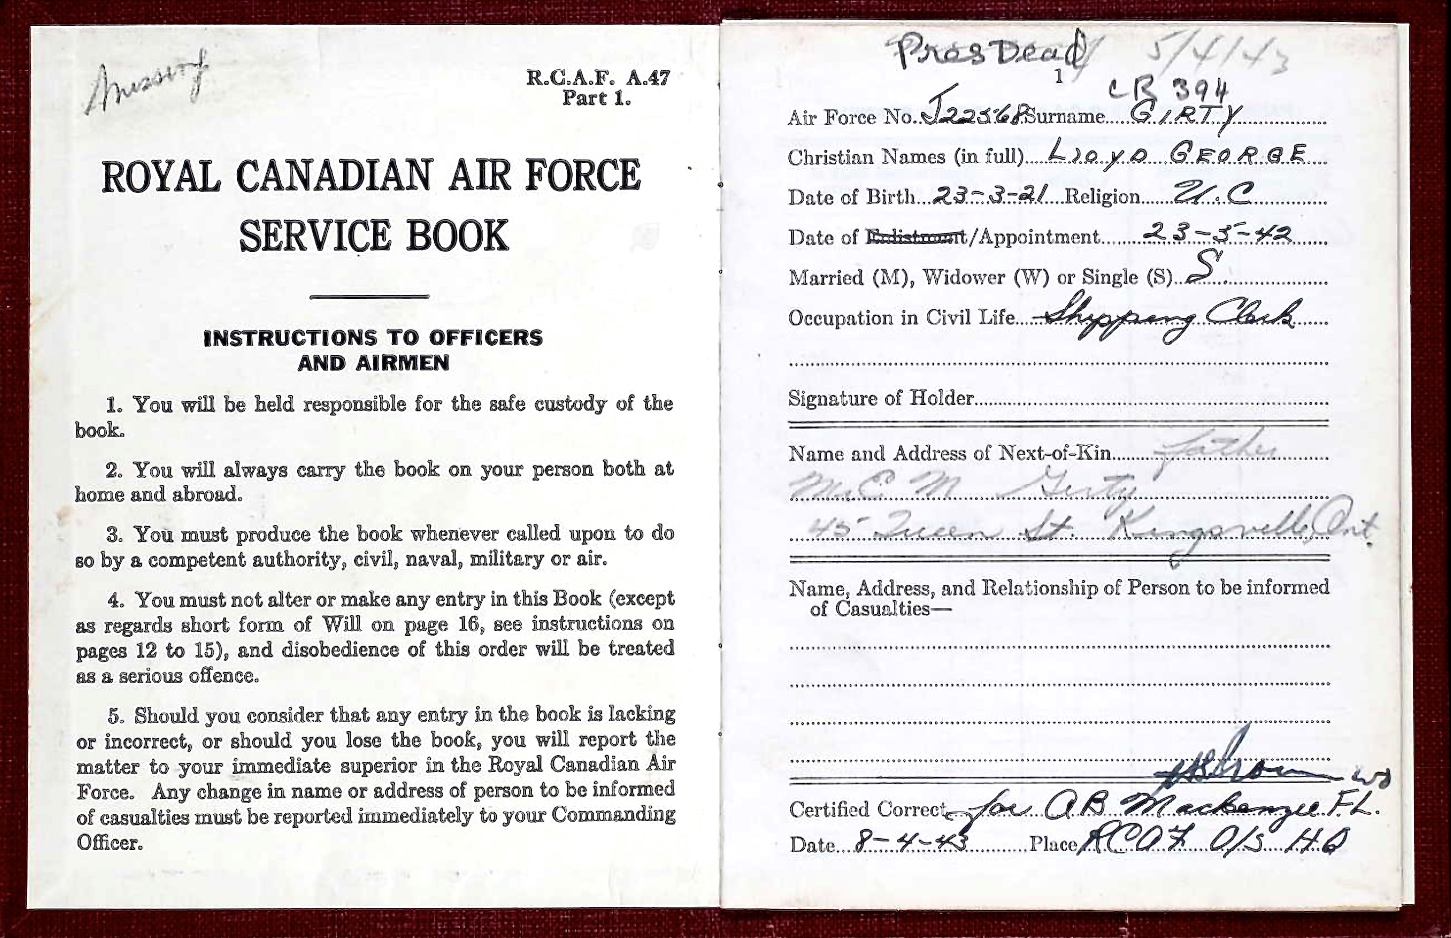 Missing
R.C.A.F. A.47
Part 1.
ROYAL CANADIAN AIR FORCE
SERVICE BOOK
INSTRUCTIONS TO OFFICERS
AND AIRMEN
1. You will be held responsible for the safe custody of the
book.
2. You will always carry the book on your person both at
home and abroad.
3. You must produce the book whenever called upon to do
so by a competent authority, civil, naval, military or air.
4. You must not alter or make any entry in this Book (except
as regards short form of Will on page 16, see instructions on
pages 12 to 15), and disobedience of this order will be treated
as a serious offence.
5. Should you consider that any entry in the book is lacking
or incorrect, or should you lose the book, you will report the
matter to your immediate superior in the Royal Canadian Air
Force. Any change in name or address of person to be informed
of casualties must be reported immediately to your Commanding
Officer.
Pres Dead 5/4/43
1
CR 394
Air Force No. J22568 Surname GIRTY
Christian Names (in full) LLOYD GEORGE
Date of Birth 23-3-21 Religion U.C
Date of Enlistment/Appointment 23-5-42
Married (M), Widower (W) or Single (S) S
Occupation in Civil Life Shipping Clerk
Signature of Holder
Name and Address of Next-of-Kin father
Mr C M Girty
45 Queen St. Kingsville, Ont.
Name, Address, and Relationship of Person to be informed
of Casualties—
WO
Certified Correct for A B Mackenzie F.L.
Date 8-4-43 Place RCAF O/S HQ